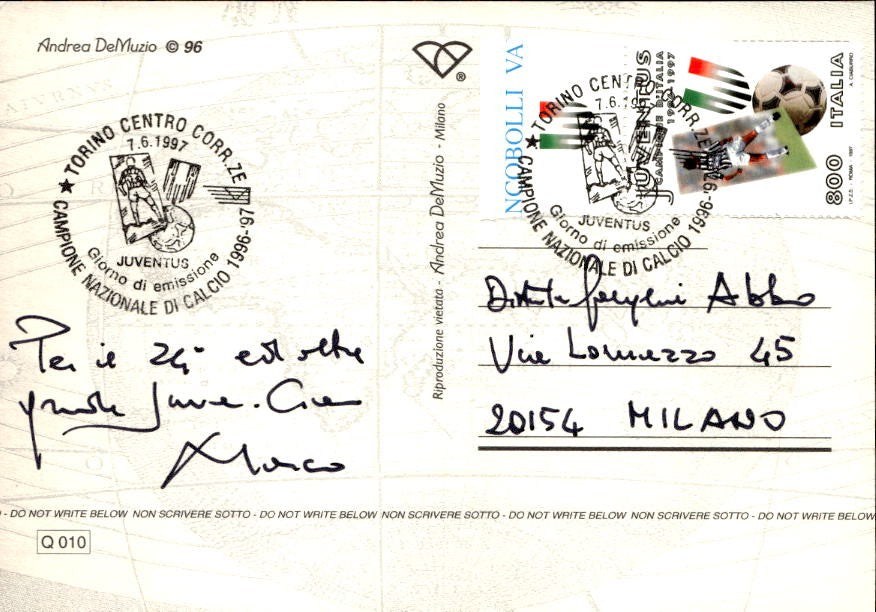 Andrea DeMuzio © 96
®
TORINO CENTRO CORR.ZE
7.6.1997
JUVENTUS
Giorno di emissione
CAMPIONE NAZIONALE DI CALCIO 1996-'97
Per il 24°
grande Juve. Ciao
Marco
Riproduzione vietata - Andrea DeMuzio - Milano
NCOBOLLI VA
JUVENTUS
CAMPIONE D'ITALIA
1996 1997
800 ITALIA
A. CIABURRO
I.P.Z.S. - ROMA - 1997
TORINO CENTRO CORR.ZE
7.6.19
JUVENTUS
Giorno di emissione
CAMPIONE NAZIONALE DI CALCIO 1996-'97
Abbo
Via Lomazzo 45
20154 MILANO
- DO NOT WRITE BELOW NON SCRIVERE SOTTO - DO NOT WRITE BELOW NON SCRIVERE SOTTO - DO NOT WRITE BELOW NON SCRIVERE SOTTO - DO NOT WRITE BELOW
Q 010